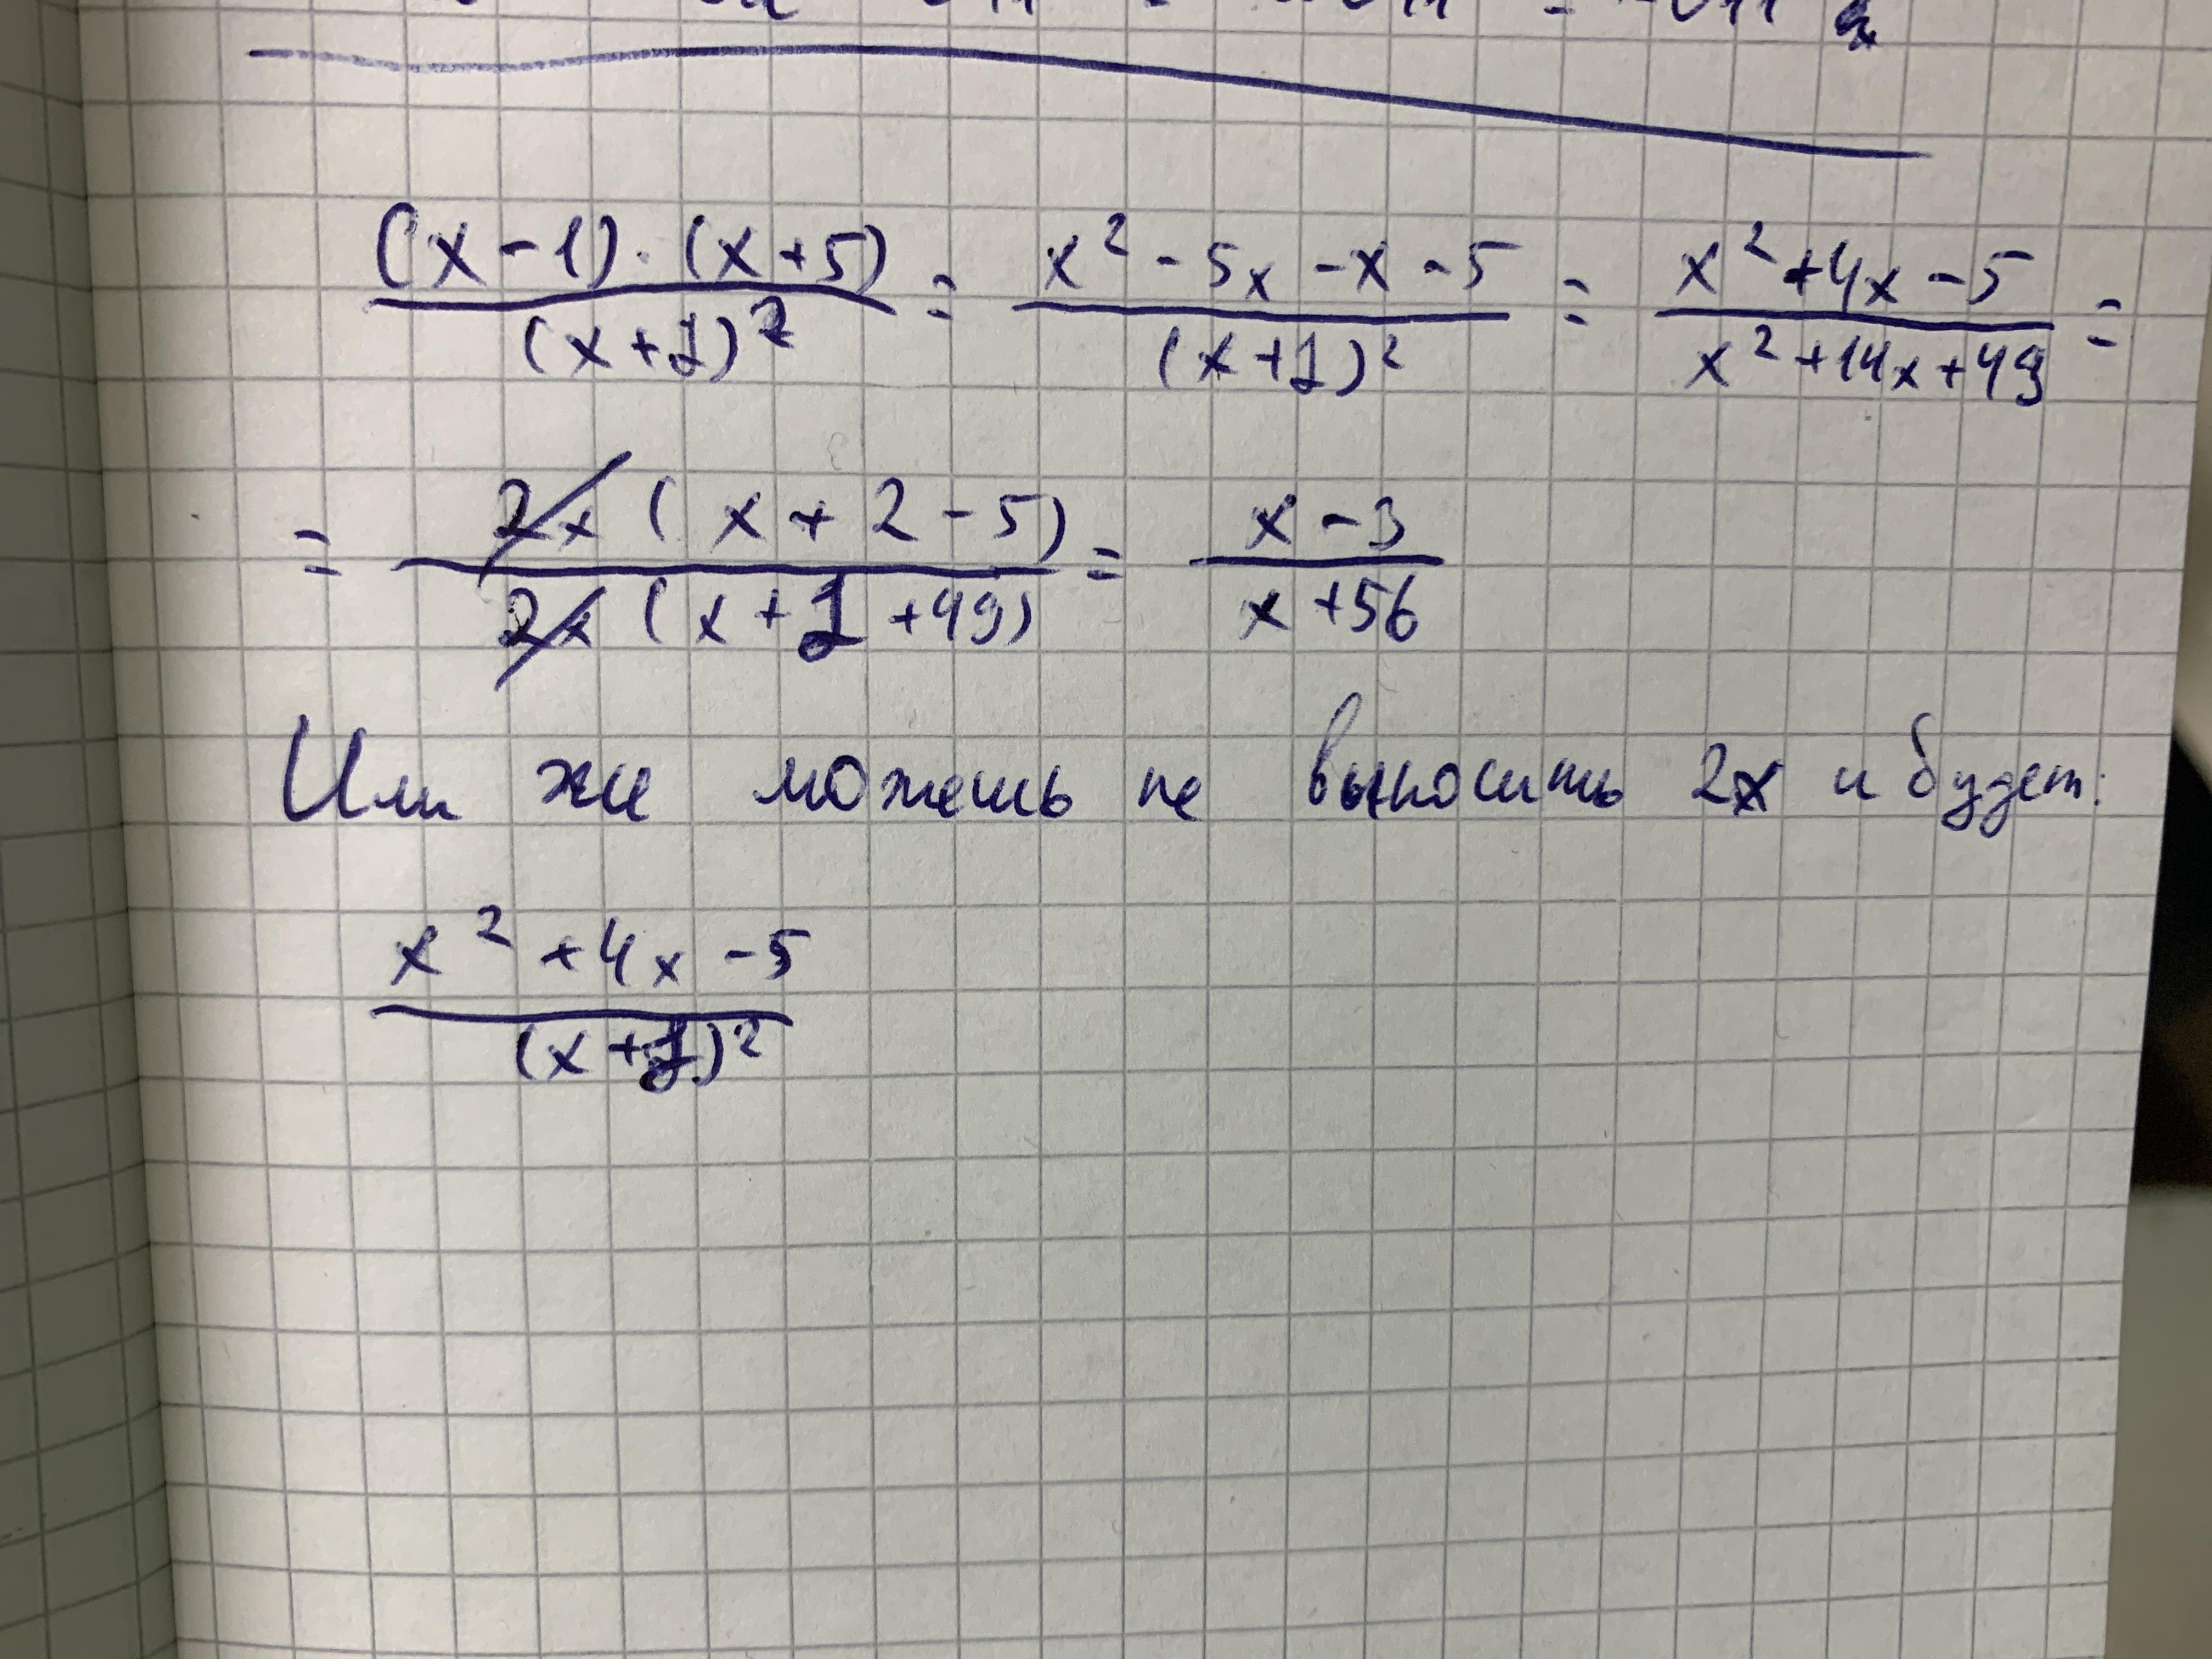 (x-1)·(x+5)/(x+7)² = x²-5x-x-5/(x+7)² = x²+4x-5/x²+14x+49 =
= 2x(x+2-5)/2x(x+7+49) = x-3/x+56
Или же можешь не выносить 2x и будет:
x²+4x-5/(x+7)²